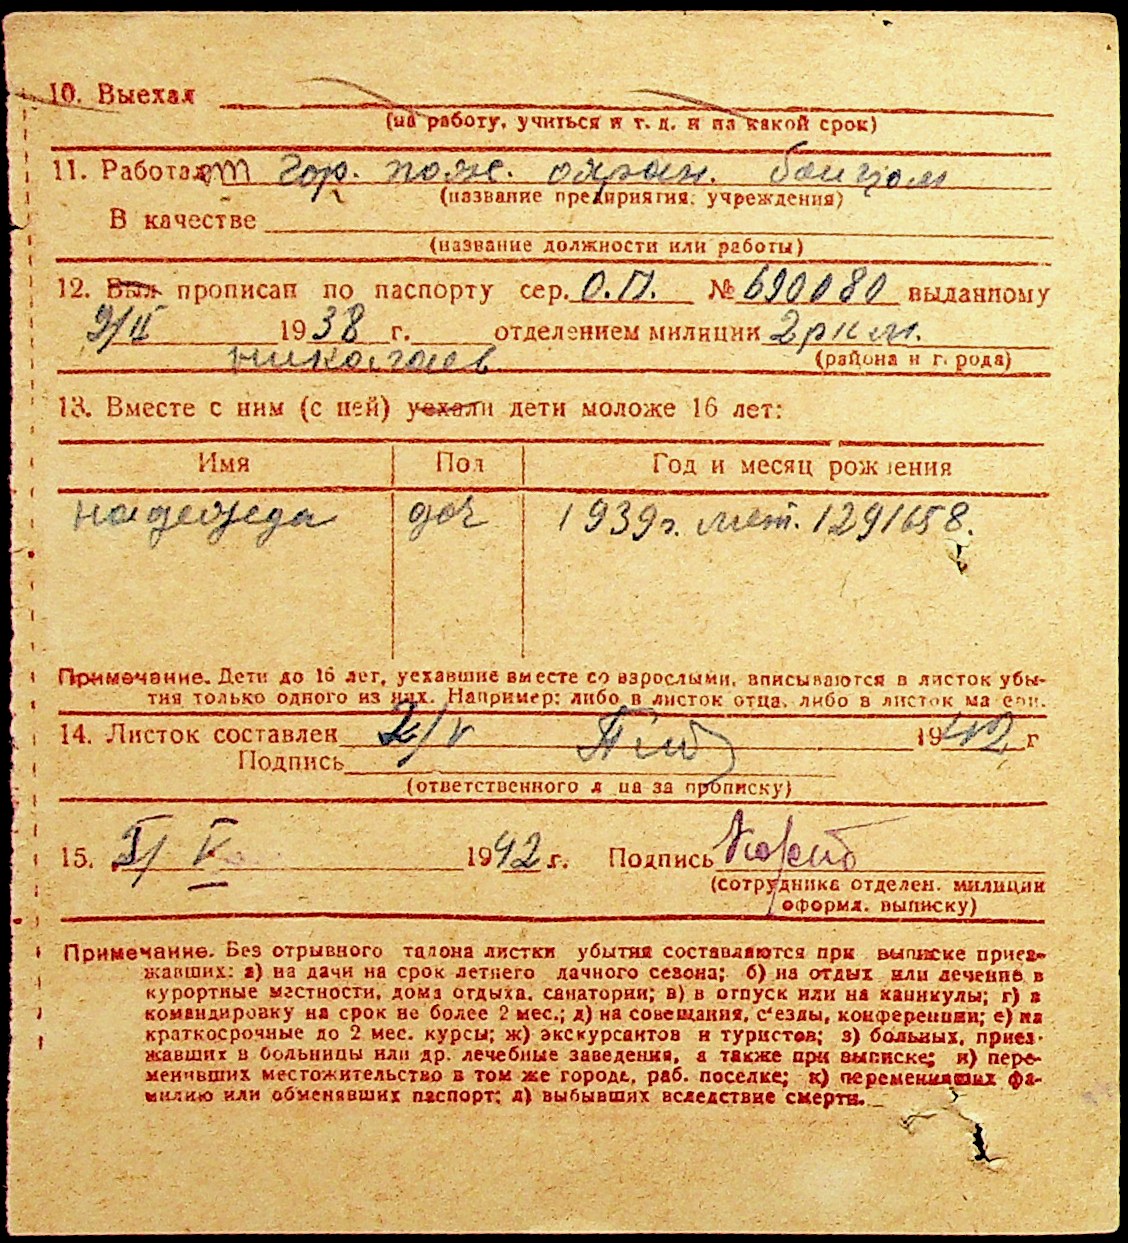 10. Выехал
(на работу, учиться и т. д. и на какой срок)
11. Работает гор. пож. охран. бойцом
(название предприятия, учреждения)
В качестве
(название должности или работы)
12. Был прописан по паспорту сер. О.П. № 690080 выданному
9/II 1938 г. отделением милиции 2 ркм.
николаев (района и города)
13. Вместе с ним (с ней) уехали дети моложе 16 лет:
Имя Пол Год и месяц рождения
надежда доч 1939г. мет. 1291658.
Примечание. Дети до 16 лет, уехавшие вместе со взрослыми, вписываются в листок убы-
тия только одного из них. Например: либо в листок отца, либо в листок матери.
14. Листок составлен 2/V 1942 г
Подпись
(ответственного лица за прописку)
15. 1942 г. Подпись
(сотрудника отделен. милиции
оформл. выписку)
Примечание. Без отрывного талона листки убытия составляются при выписке приез-
жавших: а) на дачи на срок летнего дачного сезона; б) на отдых или лечение в
курортные местности, дома отдыха, санатории; в) в отпуск или на каникулы; г) в
командировку на срок не более 2 мес.; д) на совещания, съезды, конференции; е) на
краткосрочные до 2 мес. курсы; ж) экскурсантов и туристов; з) больных, приез-
жавших в больницы или др. лечебные заведения, а также при выписке; и) пере-
менивших местожительство в том же городе, раб. поселке; к) переменивших фа-
милию или обменявших паспорт; л) выбывших вследствие смерти.